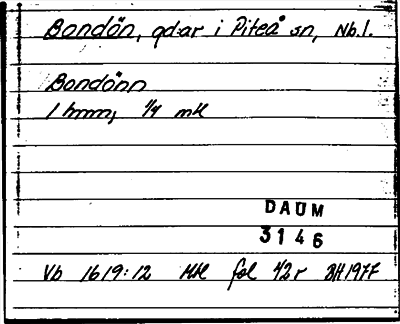 Bondön, gd:ar i Piteå sn, Nb.l.
Bondönn
1 hmn, 1/4 mtl
DAUM
3146
Vb 1619:12 Mtl fol 42r BH 1977